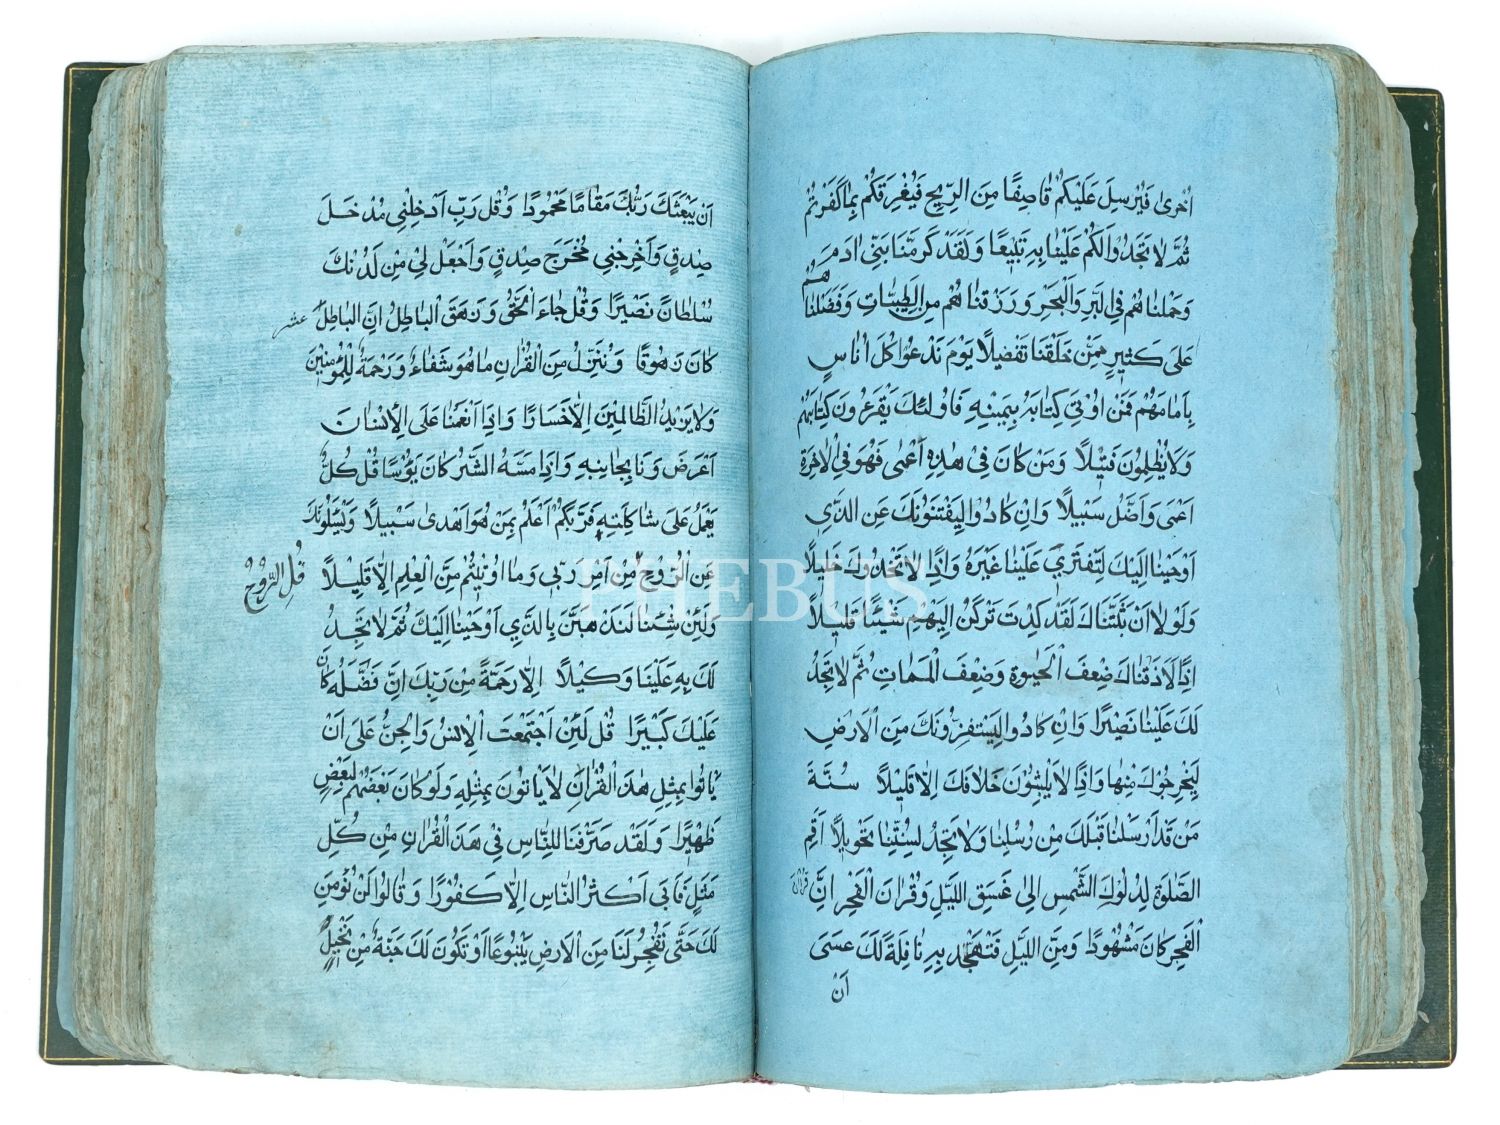 اُخْرىٰ فَيُرْسِلَ عَلَيْكُمْ قَاصِفًا مِنَ الرِّيحِ فَيُغْرِقَكُمْ بِمَا كَفَرْتُمْ
ثُمَّ لَا تَجِدُوا لَكُمْ عَلَيْنَا بِهِ تَبِيعًا وَلَقَدْ كَرَّمْنَا بَنِي اٰدَمَ
وَحَمَلْنَاهُمْ فِي الْبَرِّ وَالْبَحْرِ وَرَزَقْنَاهُمْ مِنَ الطَّيِّبَاتِ وَفَضَّلْنَاهُمْ
عَلَى كَثِيرٍ مِمَّنْ خَلَقْنَا تَفْضِيلًا يَوْمَ نَدْعُوا كُلَّ اُنَاسٍ
بِاِمَامِهِمْ فَمَنْ اُوتِيَ كِتَابَهُ بِيَمِينِهِ فَاُولٰئِكَ يَقْرَءُونَ كِتَابَهُمْ
وَلَا يُظْلَمُونَ فَتِيلًا وَمَنْ كَانَ فِي هٰذِهِ اَعْمٰى فَهُوَ فِي الْاٰخِرَةِ
اَعْمٰى وَاَضَلُّ سَبِيلًا وَاِنْ كَادُوا لَيَفْتِنُونَكَ عَنِ الَّذِي
اَوْحَيْنَا اِلَيْكَ لِتَفْتَرِيَ عَلَيْنَا غَيْرَهُ وَاِذًا لَاتَّخَذُوكَ خَلِيلًا
وَلَوْلَا اَنْ ثَبَّتْنَاكَ لَقَدْ كِدْتَ تَرْكَنُ اِلَيْهِمْ شَيْئًا قَلِيلًا
اِذًا لَاَذَقْنَاكَ ضِعْفَ الْحَيٰوةِ وَضِعْفَ الْمَمَاتِ ثُمَّ لَا تَجِدُ
لَكَ عَلَيْنَا نَصِيرًا وَاِنْ كَادُوا لَيَسْتَفِزُّونَكَ مِنَ الْاَرْضِ
لِيُخْرِجُوكَ مِنْهَا وَاِذًا لَا يَلْبَثُونَ خِلَافَكَ اِلَّا قَلِيلًا سُنَّةَ
مَنْ قَدْ اَرْسَلْنَا قَبْلَكَ مِنْ رُسُلِنَا وَلَا تَجِدُ لِسُنَّتِنَا تَحْوِيلًا اَقِمِ
الصَّلٰوةَ لِدُلُوكِ الشَّمْسِ اِلٰى غَسَقِ اللَّيْلِ وَقُرْاٰنَ الْفَجْرِ اِنَّ قُرْاٰنَ
الْفَجْرِ كَانَ مَشْهُودًا وَمِنَ اللَّيْلِ فَتَهَجَّدْ بِهِ نَافِلَةً لَكَ عَسٰى
اَنْ
اَنْ يَبْعَثَكَ رَبُّكَ مَقَامًا مَحْمُودًا وَقُلْ رَبِّ اَدْخِلْنِي مُدْخَلَ
صِدْقٍ وَاَخْرِجْنِي مُخْرَجَ صِدْقٍ وَاجْعَلْ لِي مِنْ لَدُنْكَ
سُلْطَانًا نَصِيرًا وَقُلْ جَاءَ الْحَقُّ وَزَهَقَ الْبَاطِلُ اِنَّ الْبَاطِلَ
عشر
كَانَ زَهُوقًا وَنُنَزِّلُ مِنَ الْقُرْاٰنِ مَا هُوَ شِفَاءٌ وَرَحْمَةٌ لِلْمُؤْمِنِينَ
وَلَا يَزِيدُ الظَّالِمِينَ اِلَّا خَسَارًا وَاِذَا اَنْعَمْنَا عَلَى الْاِنْسَانِ
اَعْرَضَ وَنَاٰ بِجَانِبِهِ وَاِذَا مَسَّهُ الشَّرُّ كَانَ يَؤُسًا قُلْ كُلٌّ
يَعْمَلُ عَلَى شَاكِلَتِهِ فَرَبُّكُمْ اَعْلَمُ بِمَنْ هُوَ اَهْدٰى سَبِيلًا وَيَسْئَلُونَكَ
عَنِ الرُّوحِ مِنْ اَمْرِ رَبِّي وَمَا اُوتِيتُمْ مِنَ الْعِلْمِ اِلَّا قَلِيلًا
قُلِ الرُّوحُ
وَلَئِنْ شِئْنَا لَنَذْهَبَنَّ بِالَّذِي اَوْحَيْنَا اِلَيْكَ ثُمَّ لَا تَجِدُ
لَكَ بِهِ عَلَيْنَا وَكِيلًا اِلَّا رَحْمَةً مِنْ رَبِّكَ اِنَّ فَضْلَهُ كَانَ
عَلَيْكَ كَبِيرًا قُلْ لَئِنِ اجْتَمَعَتِ الْاِنْسُ وَالْجِنُّ عَلَى اَنْ
يَاْتُوا بِمِثْلِ هٰذَا الْقُرْاٰنِ لَا يَاْتُونَ بِمِثْلِهِ وَلَوْ كَانَ بَعْضُهُمْ لِبَعْضٍ
ظَهِيرًا وَلَقَدْ صَرَّفْنَا لِلنَّاسِ فِي هٰذَا الْقُرْاٰنِ مِنْ كُلِّ
مَثَلٍ فَاَبٰى اَكْثَرُ النَّاسِ اِلَّا كُفُورًا وَقَالُوا لَنْ نُؤْمِنَ
لَكَ حَتّٰى تَفْجُرَ لَنَا مِنَ الْاَرْضِ يَنْبُوعًا اَوْ تَكُونَ لَكَ جَنَّةٌ مِنْ نَخِيلٍ
PHEBUS